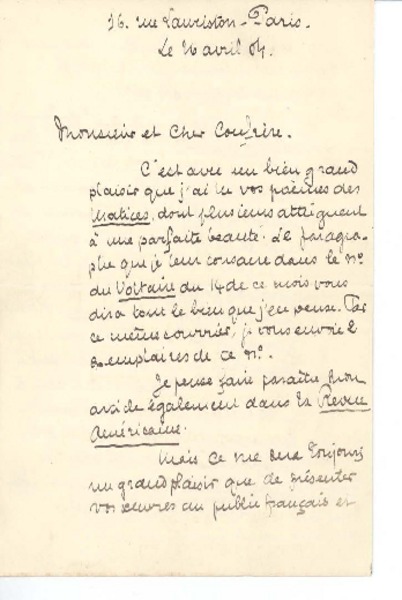 16. rue Lauriston - Paris.
Le 16 avril 04.
Monsieur et Cher Confrère.
C'est avec un bien grand
plaisir que j'ai lu vos poèmes des
Matices, dont plusieurs atteignent
à une parfaite beauté. Le paragra-
phe que je leur consacre dans le n°
du Voltaire du 14 de ce mois vous
dira tout le bien que j'en pense. Par
ce même courrier, je vous envoie 2
exemplaires de ce n°.
Je pense faire paraître mon
article également dans la Revue
Américaine.
Mais ce me sera toujours
un grand plaisir que de présenter
vos œuvres au public français et